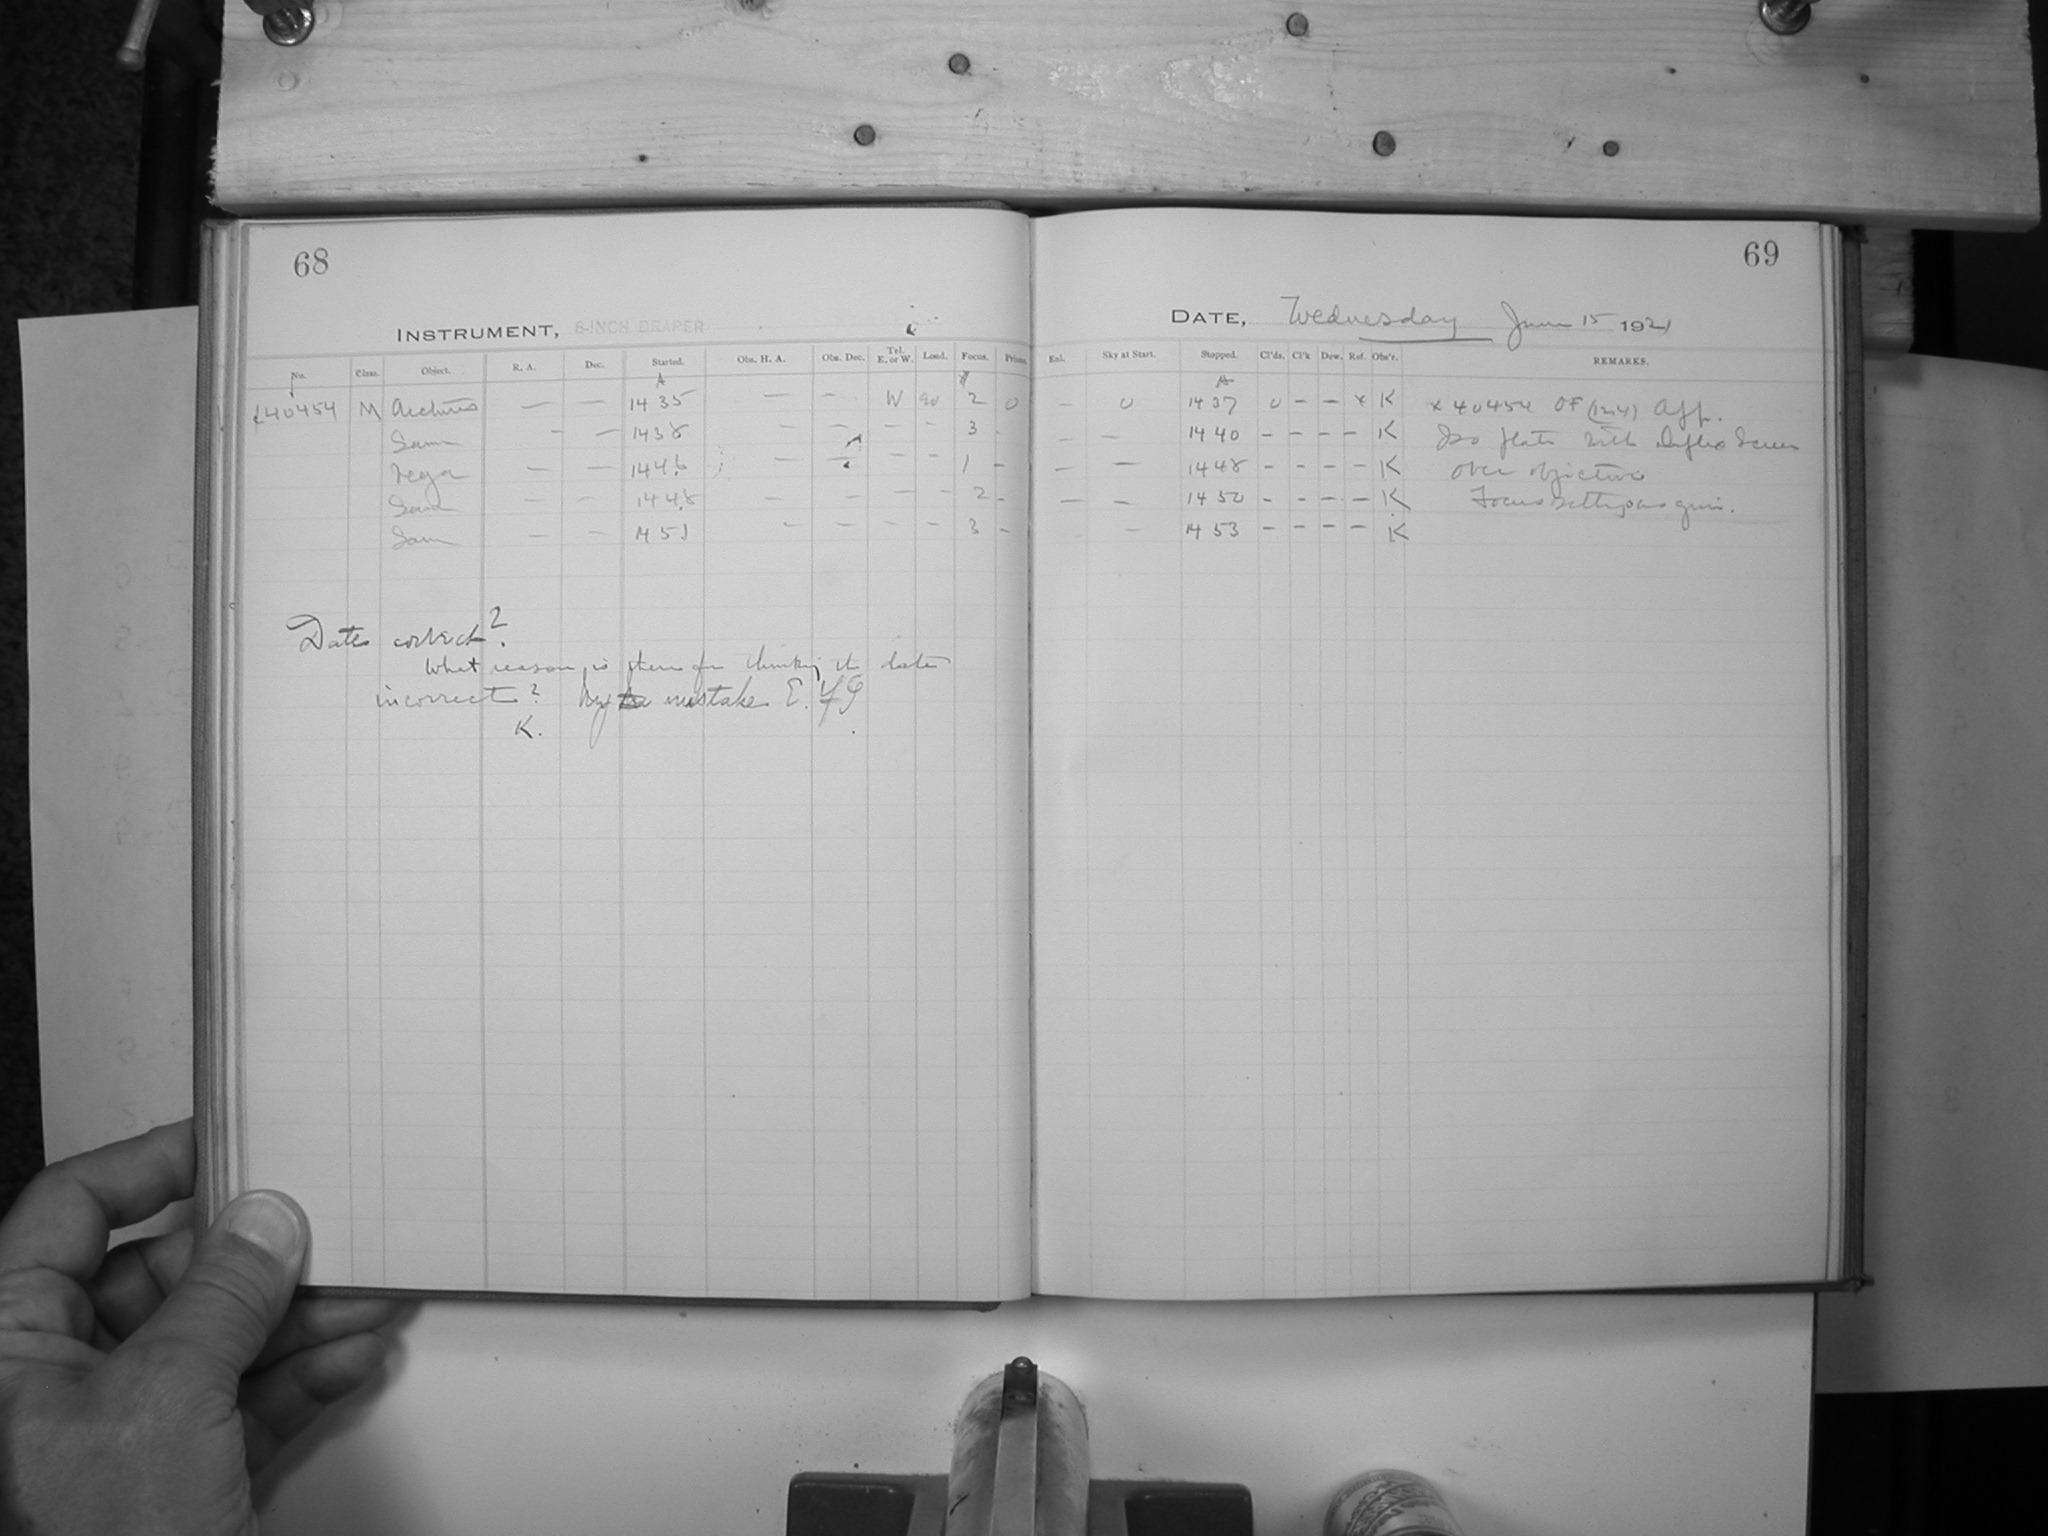 68
INSTRUMENT, 8-INCH DRAPER
No. Class. Object. R. A. Dec. Started. Obs. H. A. Obs. Dec. Tel. E. or W. Load. Focus. Prism.
A
40454 M Arcturus — — 14 35 — — W 90 2 0
Same — — 14 38 — — — — 3 -
Vega — — 14 46 — — — — 1 -
Same — — 14 48 — — — — 2 -
Same — — 14 51 — — — — 3 -
Date correct?
What reason is there for thinking the date
incorrect? My mistake E.
K.
69
DATE, Wednesday June 15 1921
Exl. Sky at Start. Stopped. Cl'ds. Cl'k Dew. Ref. Obs'r. REMARKS.
A
— 0 14 37 0 — — x K x 40454 OF
— — 14 40 — — — — K Iso plate with Screen
— — 14 48 — — — — K over objective
— — 14 50 — — — — K Focus settings as given.
— 14 53 — — — — K